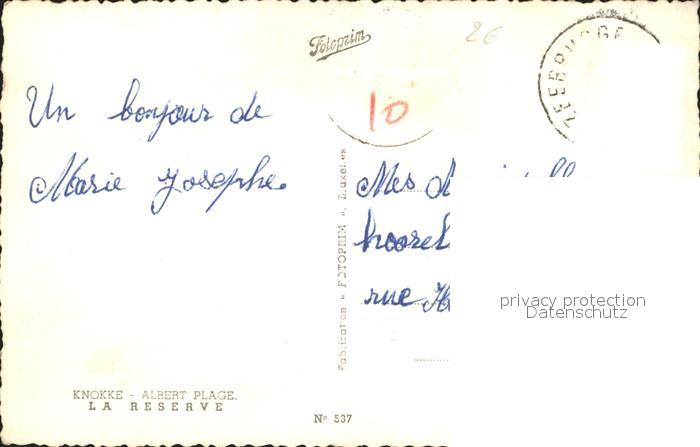 Fotoprim
2€
ZEEBRUGGE
10
Un bonjour de
Marie Josephe.
Mes
rue
Fabrication « FOTOPRIM », Bruxelles
privacy protection
Datenschutz
KNOKKE - ALBERT PLAGE.
LA RESERVE
Nº 537